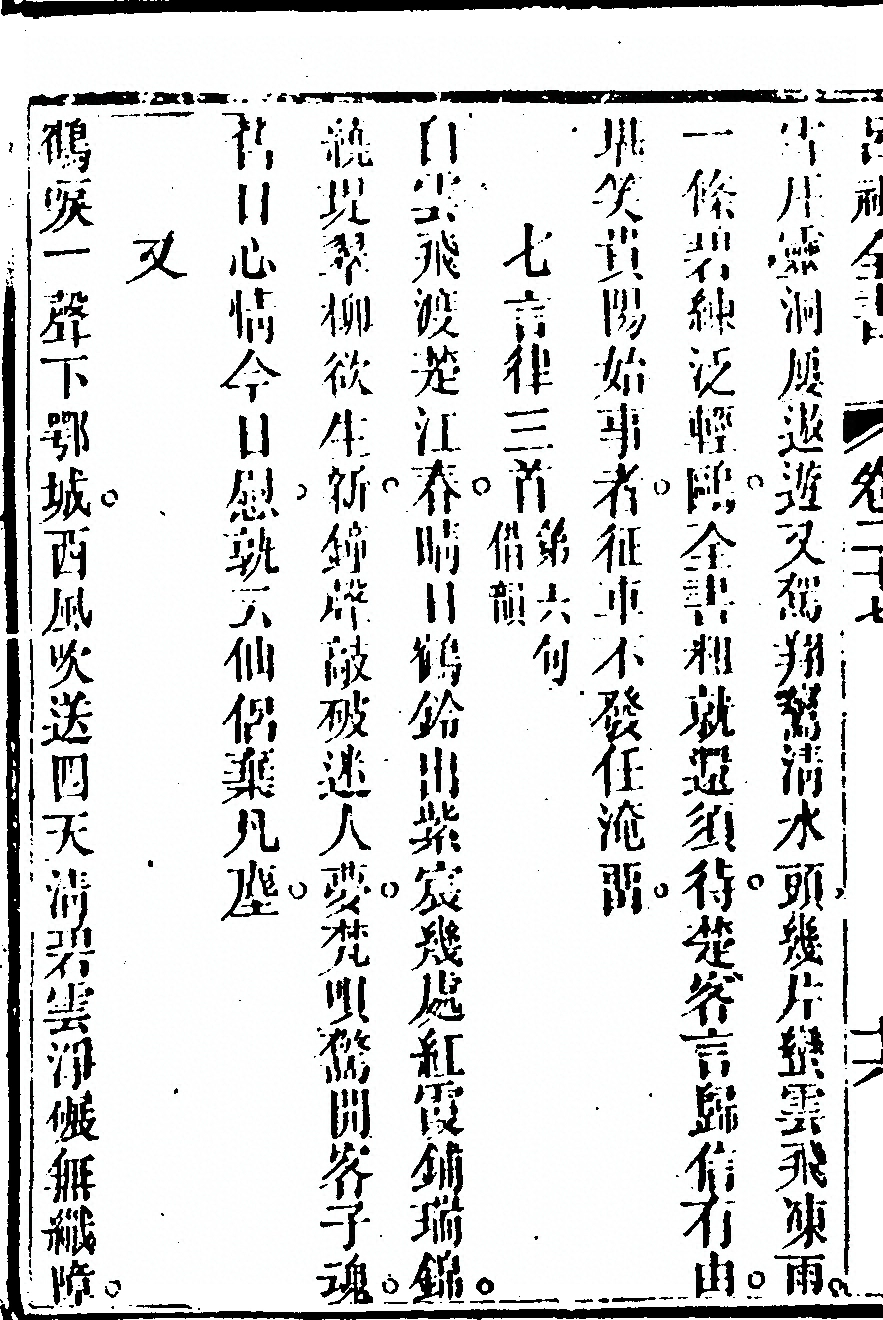 呂祖全書 卷二十七 十六
古月靈洞屢遨遊又駕翔鸞清水頭幾片蠻雲飛凍雨
一條碧練泛輕鷗全書料就還須待楚客言歸信有由
堪笑貴陽始事者征車不發任淹留
七言律三首 第六句借韻
白雲飛渡楚江春晴日鶴鈴出紫宸幾處紅霞鋪瑞錦
繞堤翠柳欲生新鐘聲敲破迷人夢梵唄驚開客子魂
舊日心情今日慰孰云仙侶棄凡塵
又
鶴唳一聲下鄂城西風吹送四天清碧雲淨儼無纖障